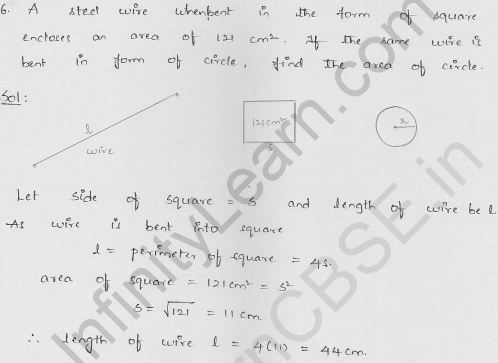 6. A steel wire when bent in the form of square
encloses an area of 121 cm². If the same wire is
bent in form of circle, find the area of circle.
Sol:
l
wire
121cm²
s
r
Let side of square = s and length of wire be l.
As wire is bent into square
l = perimeter of square = 4s.
area of square = 121cm² = s²
s = √121 = 11 cm.
∴ length of wire l = 4(11) = 44 cm.
InfinityLearn.com
LearnCBSE.in